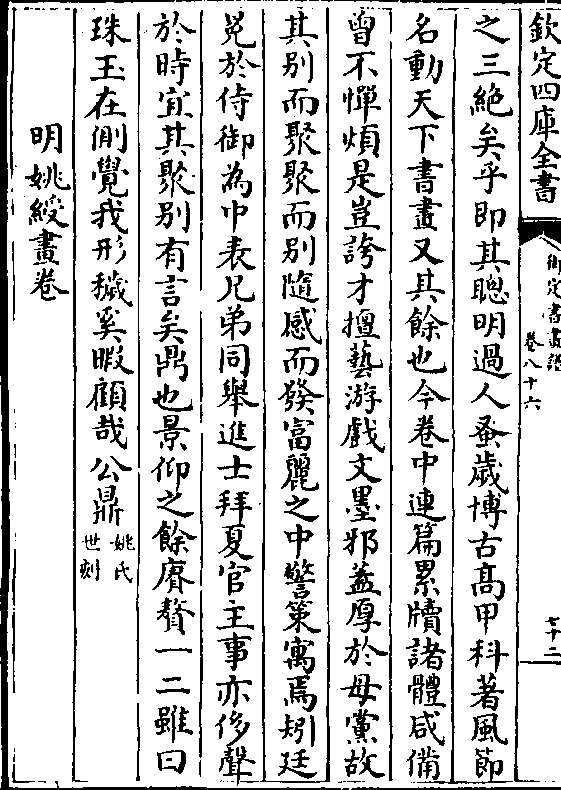 欽定四庫全書
御定書畫譜
卷八十六
七十二
之三絶矣乎即其聰明過人蚤歲博古高甲科著風節
名動天下書畫又其餘也今卷中連篇累牘諸體咸備
曾不憚煩是豈誇才擅藝游戲文墨邪蓋厚於母黨故
其别而聚聚而别隨感而發富麗之中警策寓焉矧廷
於侍御為中表兄弟同舉進士拜夏官主事亦侈聲
於時宜其聚别有言矣鼎也景仰之餘賡贅一二雖曰
珠玉在側覺我形穢奚暇顧哉公鼎姚氏世刻
明姚綬畫卷